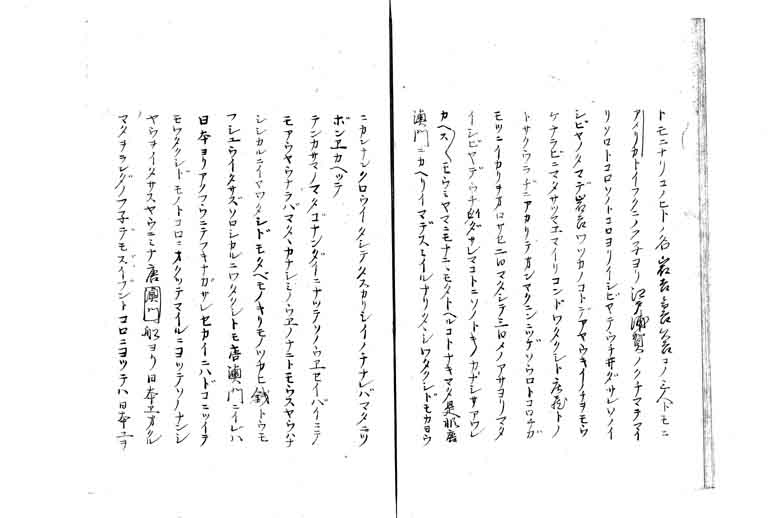 トモニナリコノヒトノ名岩吉久吉コノ三人トモニ
アメリカトイフクニノフ子ヨリ江戸浦賀ノクチマデマイ
リソロトコロソノトコロヨリイシビヤデウチ井ダサレソノイ
シビヤノタマデ岩吉ワツカノコトデアヤウキイノチヲモウ
ケナラビニマタサツマエマイリコンドワタクシド庄蔵トノ
トサクワラヂニアカリテカンマクニンニツゲソウロトコロナガ
モツニイカリヲオロサセ二日マタシテ三日メノアサヨリマタ
イシビヤデウチ出ダサレマコトニソノトキノカナシサアワレ
カヘス〱モウミヤマニモナニニモタトヘルコトナキマタ是非唐
澳門ニカヘリイマデスミイルナリタヽシワタクシドモカヨウ
ニカンナンクロウイタシテタスカリシイノチナレバマタニツ
ボンエカヘッテ
テンカサマノマタゴナンダイニナツテソノウエセイバイニテ
モアウヤウナラバマタヽカナシミノウエノナニトモウスヤウハナ
シシカルニイマワタシドモタベモノキリモノツカヒ銭トウモ
フシユウイタサズソロシカルニワタクシトモ唐澳門ニイレハ
日本ヨリアクフウニテフキナガサレセカイニハドコニツイテ
モワタクシドモノトコロニオクッテマイルニヨッテソノナンシ
ヤウヲイタサスヤウニミナ唐澳門船ヨリ日本エオクル
マタヲランダノフ子デモズイブントコロニヨツテハ日本エヲ